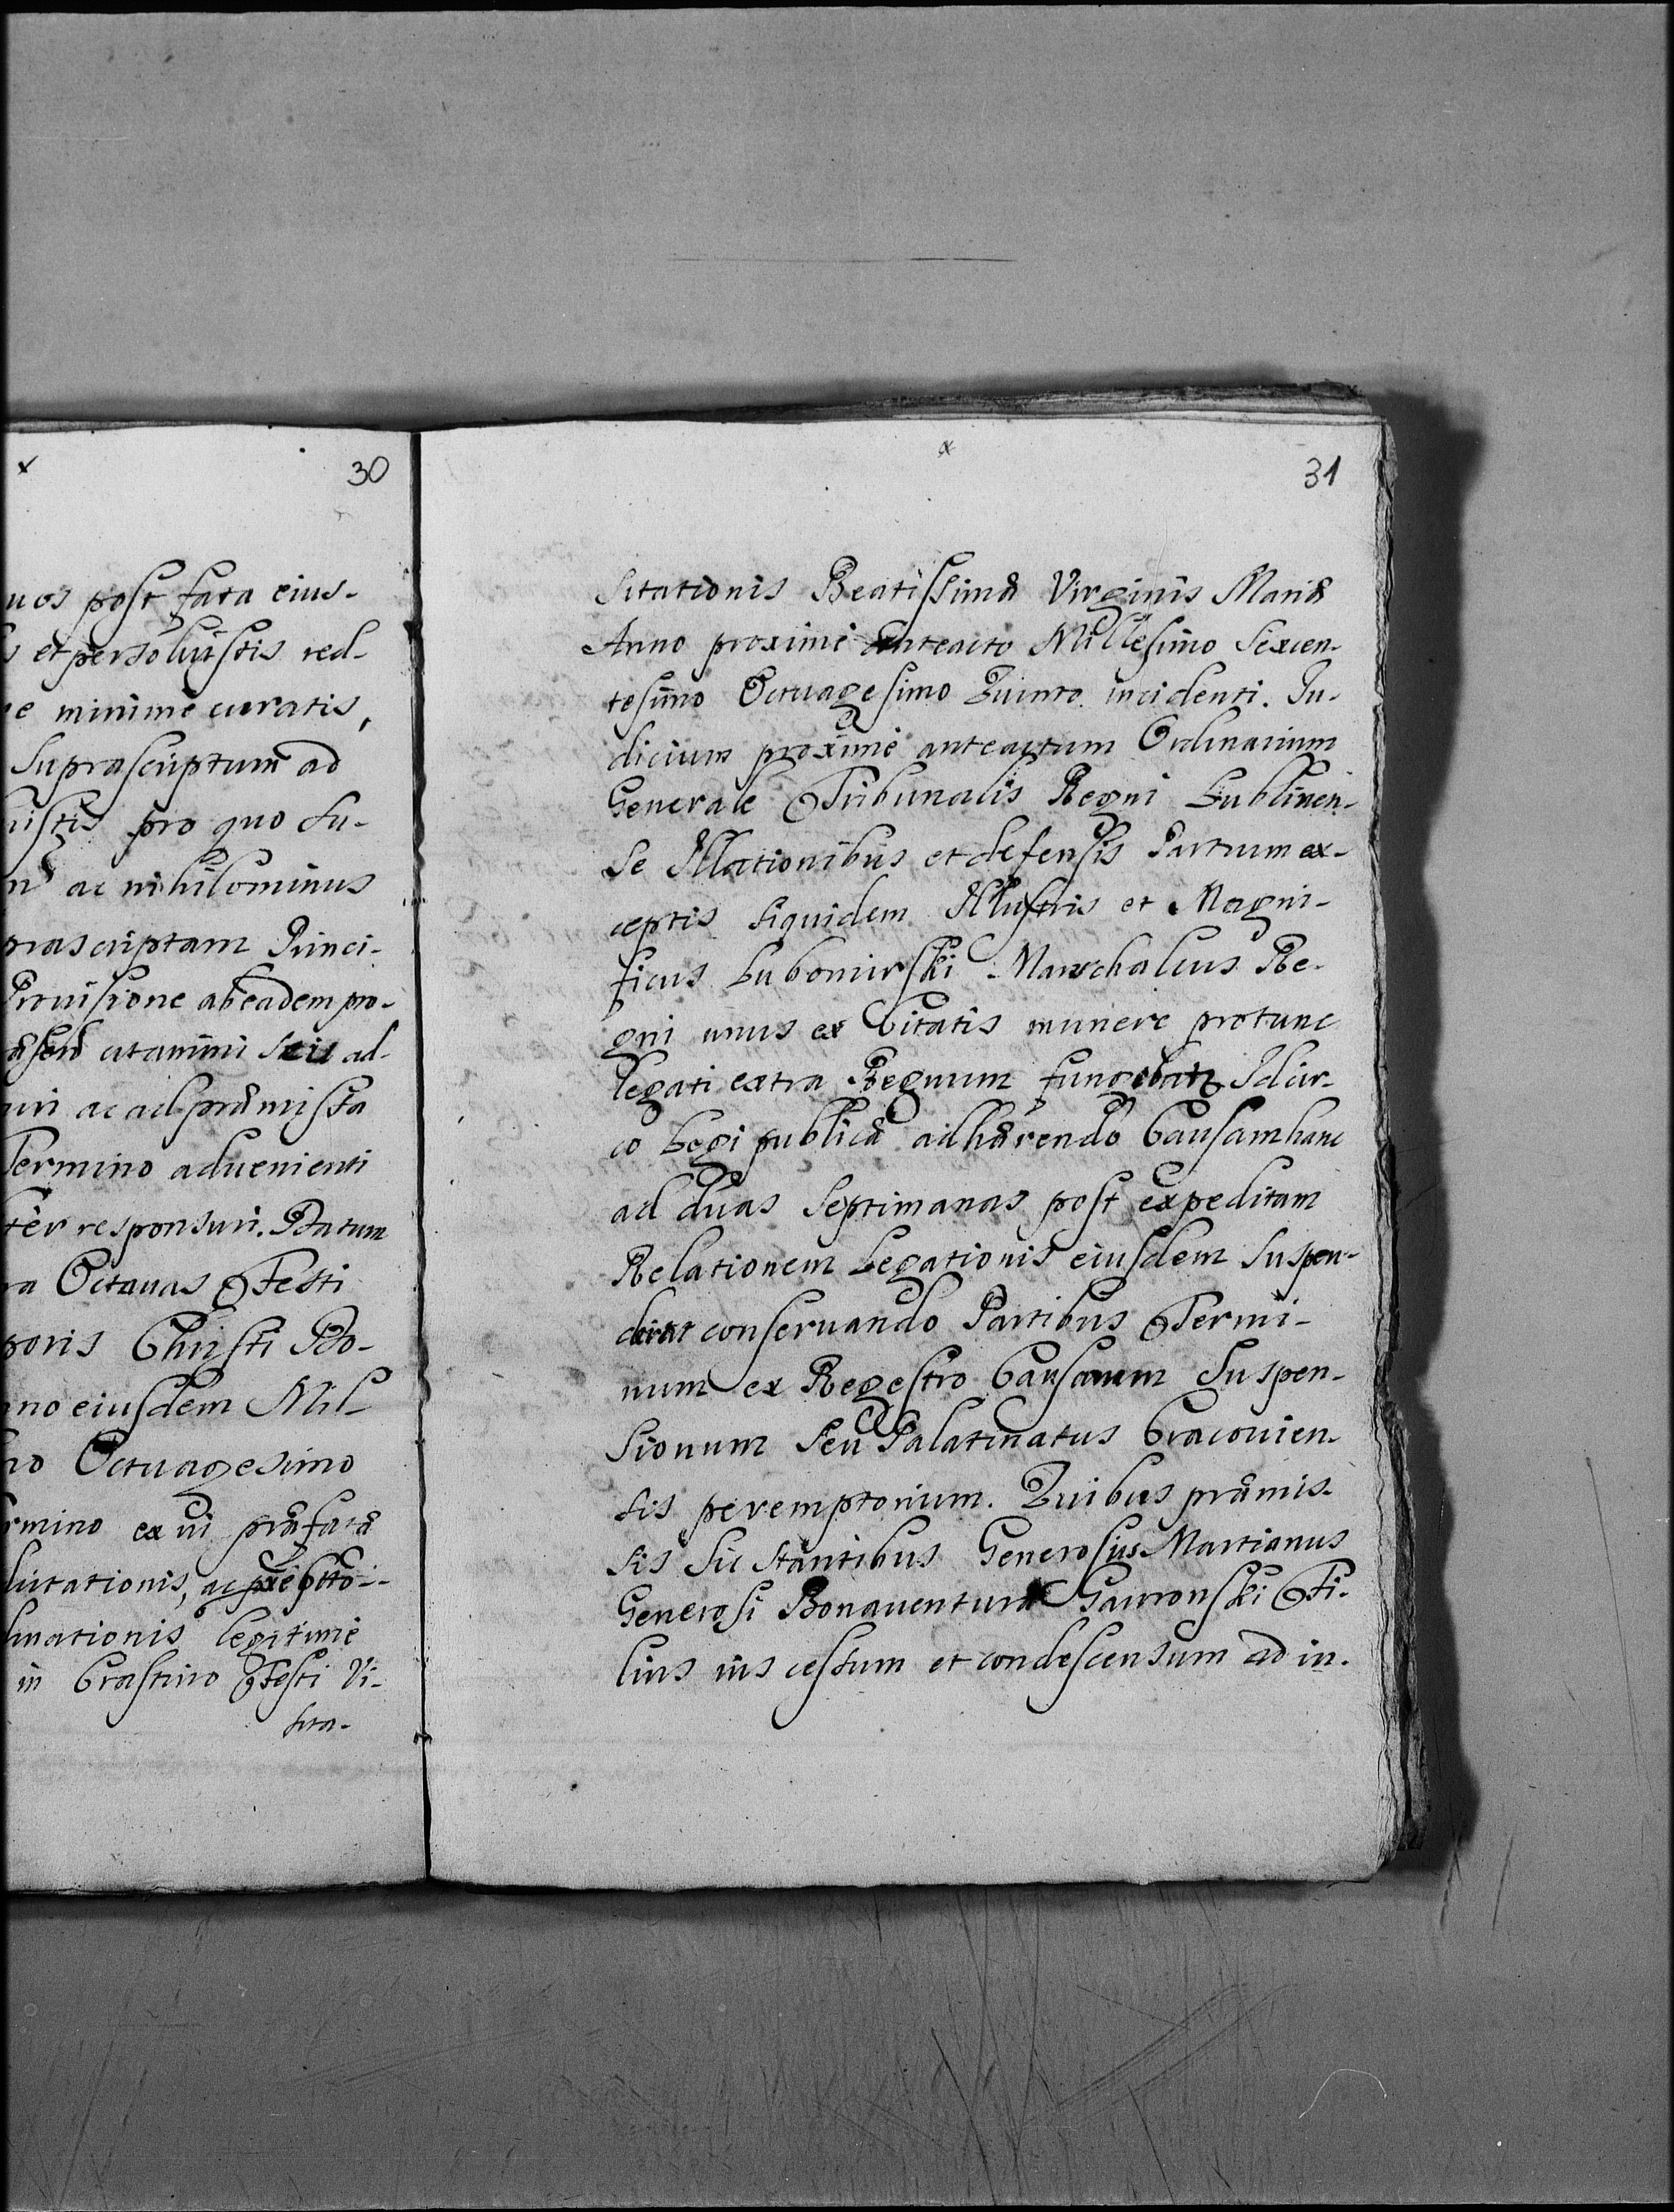 x 30
uos post fata eius-
s et persoluistis red-
re minime curatis,
Suprascriptum ad
uistis pro quo su-
ac nihilominus
prascriptam Princi-
Prouisione ab eadem pro-
citamini ad-
uri ac ad præmissa
Termino aduenienti
ter responsuri. Datum
ra Octauas Festi
poris Christi Do-
nno eiusdem Mil-
mo Octuagesimo
rmino ex ui præfatæ
Citationis, ac
linationis legitime
in Crastino Festi Vi-
sita-
x
31
sitationis Beatissimæ Virginis Mariæ
Anno proxime anteacto Millesimo Sexcen-
tesimo Octuagesimo Quinto incidenti. Ju-
dicium proxime anteactum Ordinarium
Generale Tribunalis Regni Lublinen-
se Illationibus et defensis Partium ex-
ceptis siquidem Illustris et Magni-
ficus Lubomirski Marschalcus Re-
gni unus ex Citatis munere protunc
legati extra Regnum fungebatur Idcir-
co Legi publicæ adhærendo Causam hanc
ad duas Septimanas post expeditam
Relationem Legationis eiusdem suspen-
derat conseruando Partibus Termi-
num ex Regestro Causarum Suspen-
sionum seu Palatinatus Cracouien-
sis peremptorium. Quibus præmis-
sis sic stantibus Generosus Martianus
Generosi Bonauenturæ Gawronski Fi-
lius ius cessum et condescensum ad in-